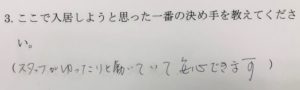 3. ここで入居しようと思った一番の決め手を教えてくださ
い。
(スタッフがゆったりと働いていて安心できます)